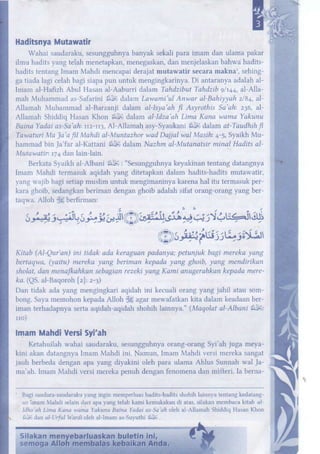 3
Haditsnya Mutawatir
Wahai saudaraku, sesungguhnya banyak sekali para imam dan ulama pakar
ilmu hadits yang telah menetapkan, menegaskan, dan menjelaskan bahwa hadits-
hadits tentang Imam Mahdi mencapai derajat mutawatir secara makna¹, sehing-
ga tiada lagi celah bagi siapa pun untuk mengingkarinya. Di antaranya adalah al-
Imam al-Hafizh Abul Hasan al-Aaburri dalam Tahdzibut Tahdzib 9/144, al-Alla-
mah Muhammad as-Safarini dalam Lawami'ul Anwar al-Bahiyyah 2/84, al-
Allamah Muhammad al-Barzanji dalam al-Isya'ah fi Asyrothis Sa'ah 236, al-
Allamah Shiddiq Hasan Khon dalam al-Idza'ah Lima Kana wama Yakunu
Baina Yadai as-Sa'ah 112-113, Al-Allamah asy-Syaukani dalam at-Taudhih fi
Tawaturi Ma Ja'a fil Mahdi al-Muntazher wad Dajjal wal Masih 4-5, Syaikh Mu-
hammad bin Ja'far al-Kattani dalam Nazhm al-Mutanatsir minal Hadits al-
Mutawatir 174 dan lain-lain.
Berkata Syaikh al-Albani : "Sesungguhnya keyakinan tentang datangnya
Imam Mahdi termasuk aqidah yang ditetapkan dalam hadits-hadits mutawatir,
yang wajib bagi setiap muslim untuk mengimaninya karena hal itu termasuk per-
kara ghoib, sedangkan beriman dengan ghoib adalah sifat orang-orang yang ber-
taqwa. Alloh berfirman:
Kitab (Al-Qur'an) ini tidak ada keraguan padanya; petunjuk bagi mereka yang
bertaqwa, (yaitu) mereka yang beriman kepada yang ghoib, yang mendirikan
sholat, dan menafkahkan sebagian rezeki yang Kami anugerahkan kepada mere-
ka. (QS. al-Baqoroh [2]: 2-3)
Dan tidak ada yang mengingkari aqidah ini kecuali orang yang jahil atau som-
bong. Saya memohon kepada Alloh agar mewafatkan kita dalam keadaan ber-
iman terhadapnya serta aqidah-aqidah shohih lainnya." (Maqolat al-Albani
110)
Imam Mahdi Versi Syi'ah
Ketahuilah wahai saudaraku, sesungguhnya orang-orang Syi'ah juga meya-
kini akan datangnya Imam Mahdi ini. Namun, Imam Mahdi versi mereka sangat
jauh berbeda dengan apa yang diyakini oleh para ulama Ahlus Sunnah wal Ja-
ma'ah. Imam Mahdi versi mereka penuh dengan fenomena dan misteri. Ia berna-
Bagi saudara-saudaraku yang ingin memperluas hadits-hadits shohih lainnya tentang kedatang-
an Imam Mahdi selain dari apa yang telah kami kemukakan di atas, silakan membaca kitab al-
Idho'ah Lima Kana wama Yakunu Baina Yadai as-Sa'ah oleh al-Allamah Shiddiq Hasan Khon
dan al-Urful Wardi oleh al-Imam as-Suyuthi
Silakan menyebarluaskan buletin ini,
semoga Alloh membalas kebaikan Anda.